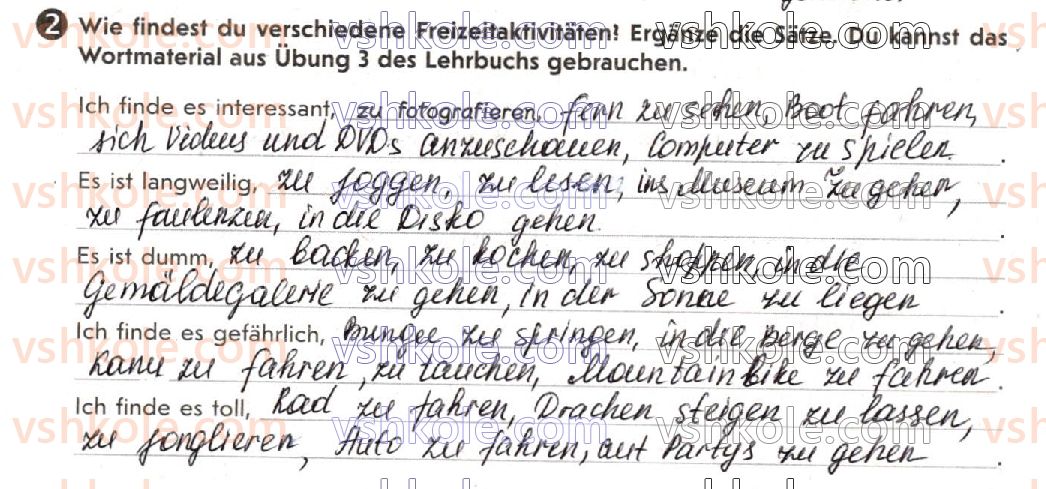 2 Wie findest du verschiedene Freizeitaktivitäten? Ergänze die Sätze. Du kannst das
Wortmaterial aus Übung 3 des Lehrbuchs gebrauchen.
Ich finde es interessant, zu fotografieren, fern zu sehen, Boot fahren,
sich Videos und DVDs anzuschauen, Computer zu spielen.
Es ist langweilig, zu joggen, zu lesen, ins Museum zu gehen,
zu faulenzen, in die Disko gehen.
Es ist dumm, zu backen, zu kochen, zu shoppen, in die
Gemäldegalerie zu gehen, in der Sonne zu liegen.
Ich finde es gefährlich, Bungee zu springen, in die Berge zu gehen,
Kanu zu fahren, zu tauchen, Mountainbike zu fahren.
Ich finde es toll, Rad zu fahren, Drachen steigen zu lassen,
zu jonglieren, Auto zu fahren, auf Partys zu gehen.